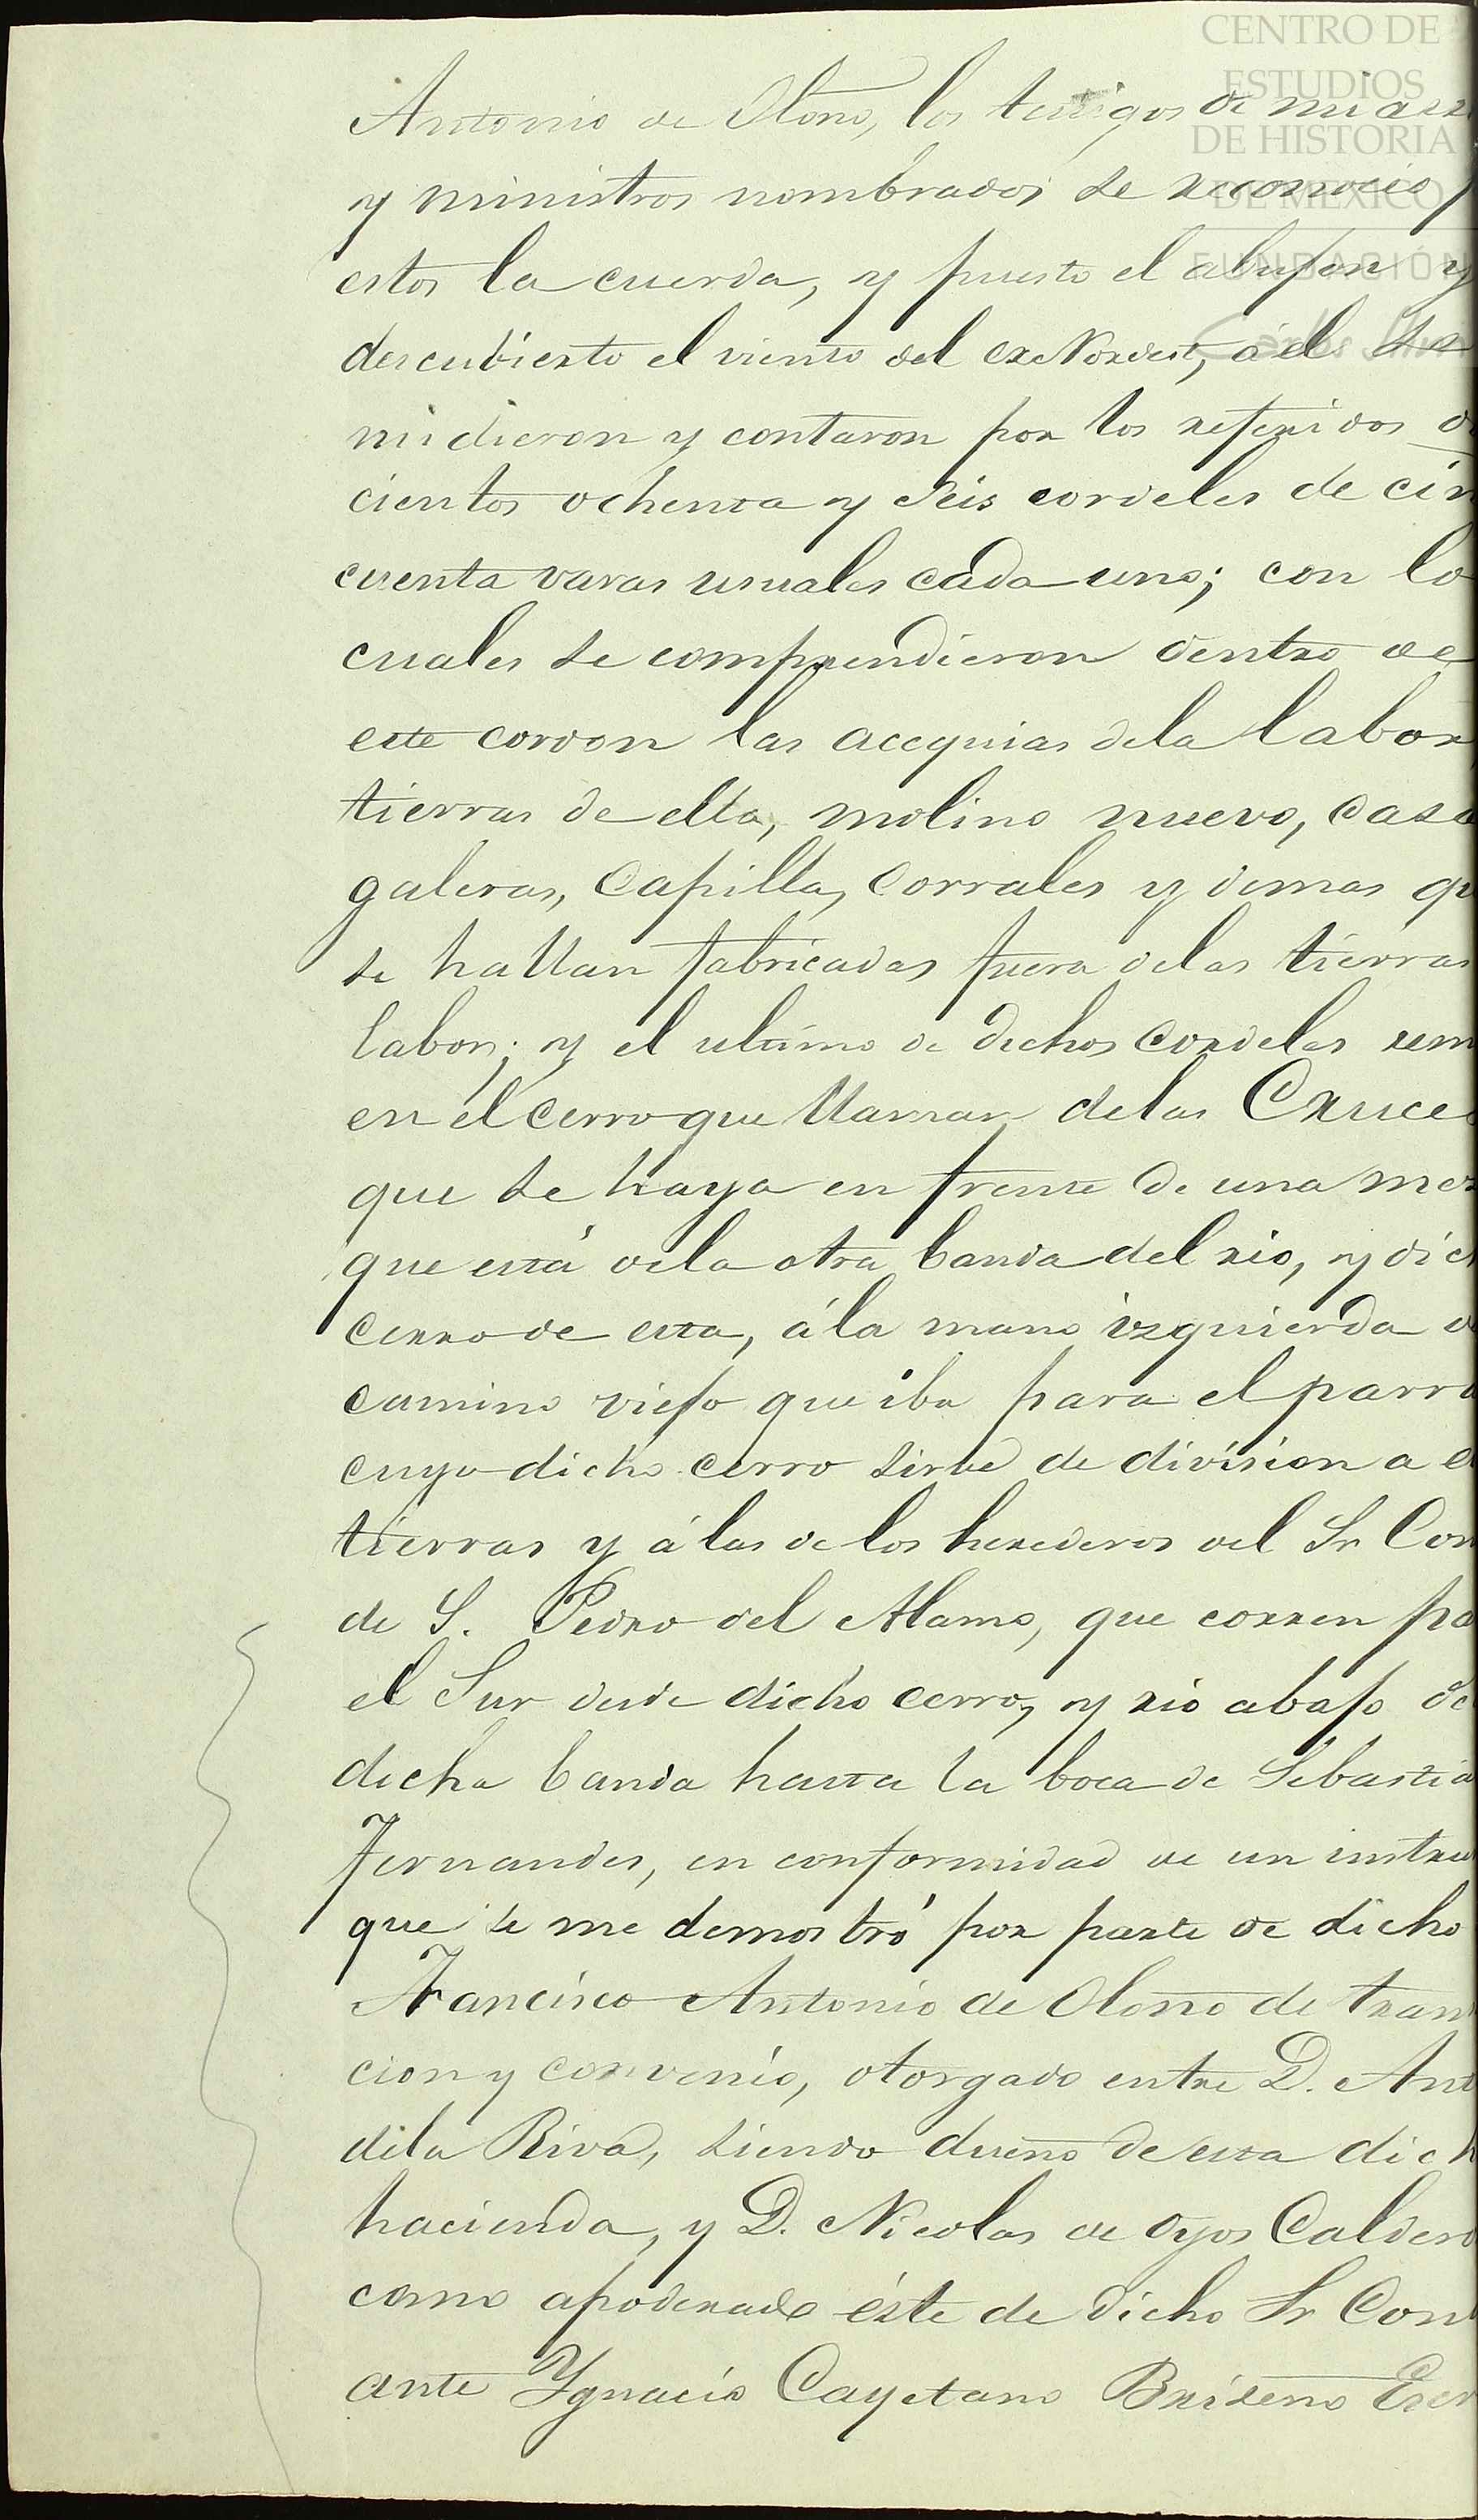 CENTRO DE
ESTUDIOS
DE HISTORIA
DE MEXICO
FUNDACIÓN
Antonio de Olono, los testigos de mi
y ministros nombrados se reconocio
estos la cuerda, y puesto el abujon y
descubierto el viento del exeNordest, á el se
midieron y contaron por los referidos
cientos ochenta y seis cordeles de cin
cuenta varas usuales cada uno; con lo
cuales se comprendieron dentro de
este cordon las acequias dela labor
tierras de ella, molino nuevo, casa
galeras, Capilla, Corrales y demas qu
se hallan fabricadas fuera delas tierras
labor; y el ultimo de dichos cordeles rem
en el cerro que llaman delas Cruces
que se haya en frente de una mes
que está dela otra banda del rio, y dich
cerro de esta, á la mano izquierda d
camino viejo que iba para el parra
cuyo dicho cerro sirbe de division a e
tierras y á las de los herederos del Sr Con
de S. Pedro del Alamo, que corren pa
el Sur desde dicho cerro, y rio abajo de
dicha banda hasta la boca de Sebastia
Fernandes, en conformidad de un instru
que se me demostró por parte de dicho
Francisco Antonio de Olono de tran
cion y convenio, otorgado entre D. Ant
dela Riva, siendo dueno de esta dich
hacienda, y D. Nicolas de Oyos Caldero
como apoderado éste de dicho Sr Con
ante Ygnacio Cayetano Briseno Escr